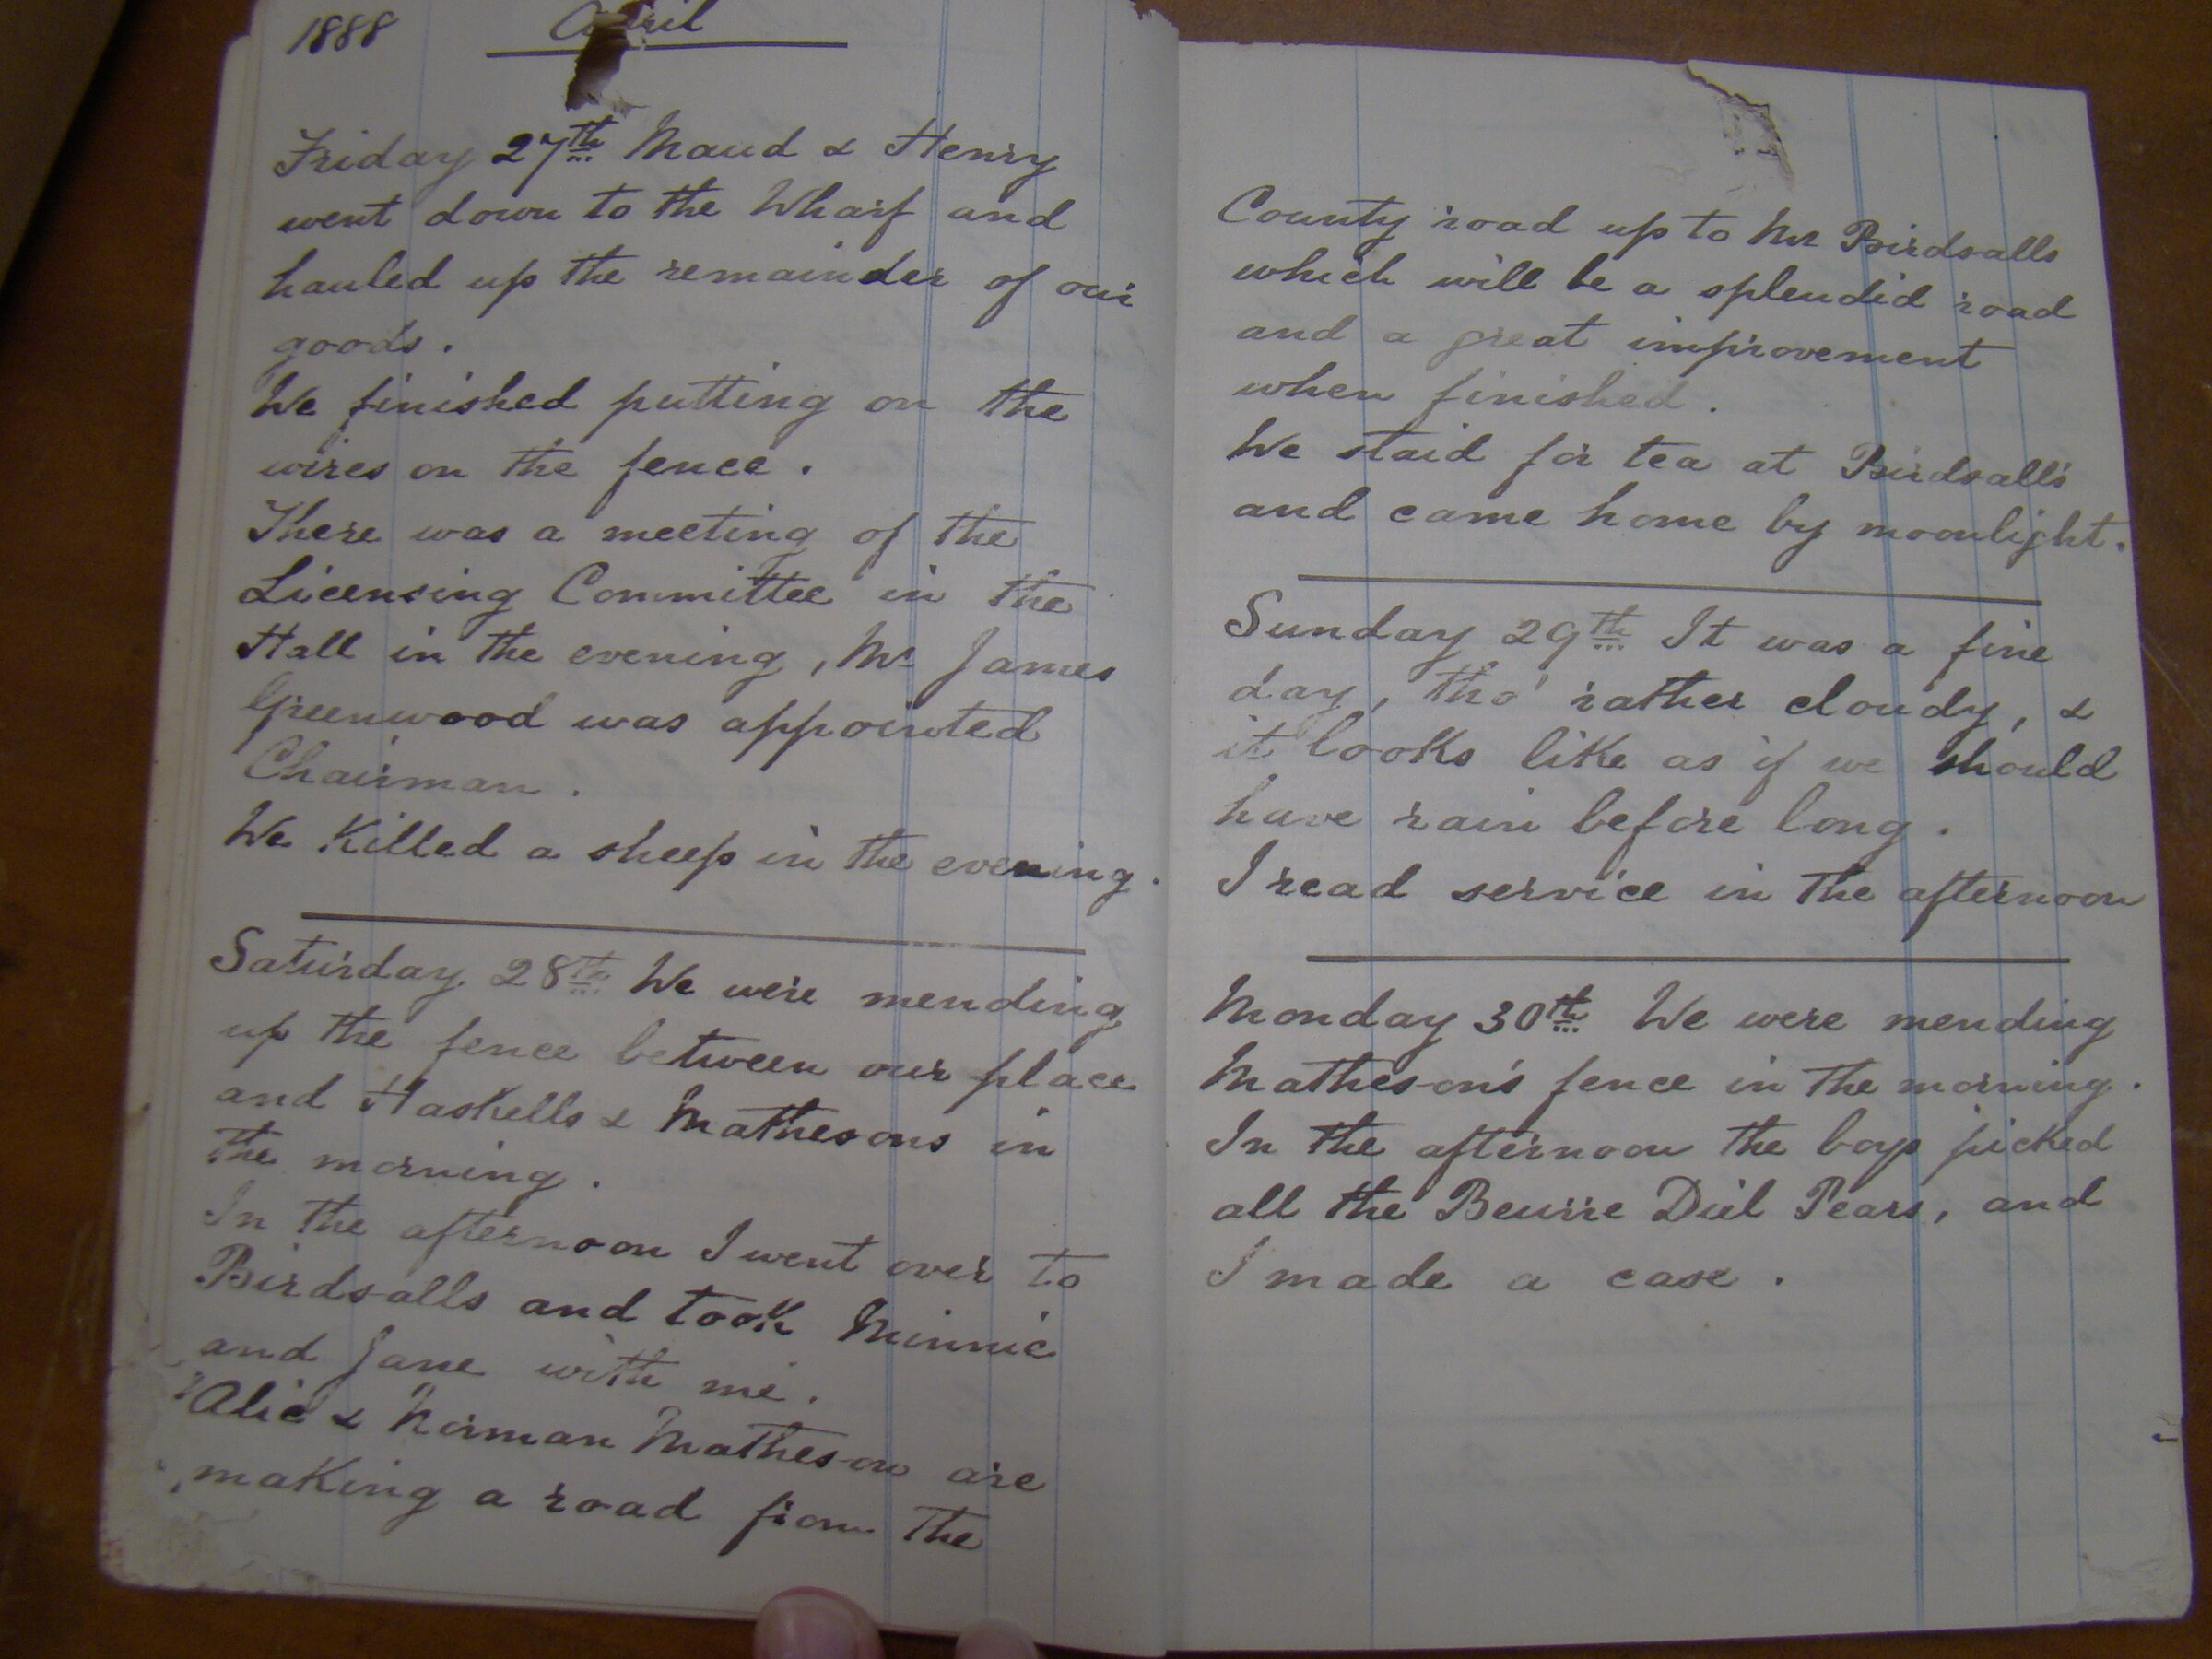 1888 April
Friday 27th Maud & Henry
went down to the Wharf and
hauled up the remainder of our
goods.
We finished putting on the
wires on the fence.
There was a meeting of the
Licensing Committee in the
Hall in the evening, Mr James
Greenwood was appointed
Chairman.
We Killed a sheep in the evening.
Saturday 28th We were mending
up the fence between our place
and Haskells & Mathesons in
the morning.
In the afternoon I went over to
Birdsalls and took Minnie
and Jane with me.
Alic & Norman Matheson are
making a road from the
County road up to Mr Birdsalls
which will be a splendid road
and a great improvement
when finished.
We staid for tea at Birdsall's
and came home by moonlight.
Sunday 29th It was a fine
day, tho' rather cloudy, &
it looks like as if we should
have rain before long.
I read service in the afternoon
Monday 30th We were mending
Matheson's fence in the morning.
In the afternoon the boys picked
all the Beurre Diel Pears, and
I made a case.